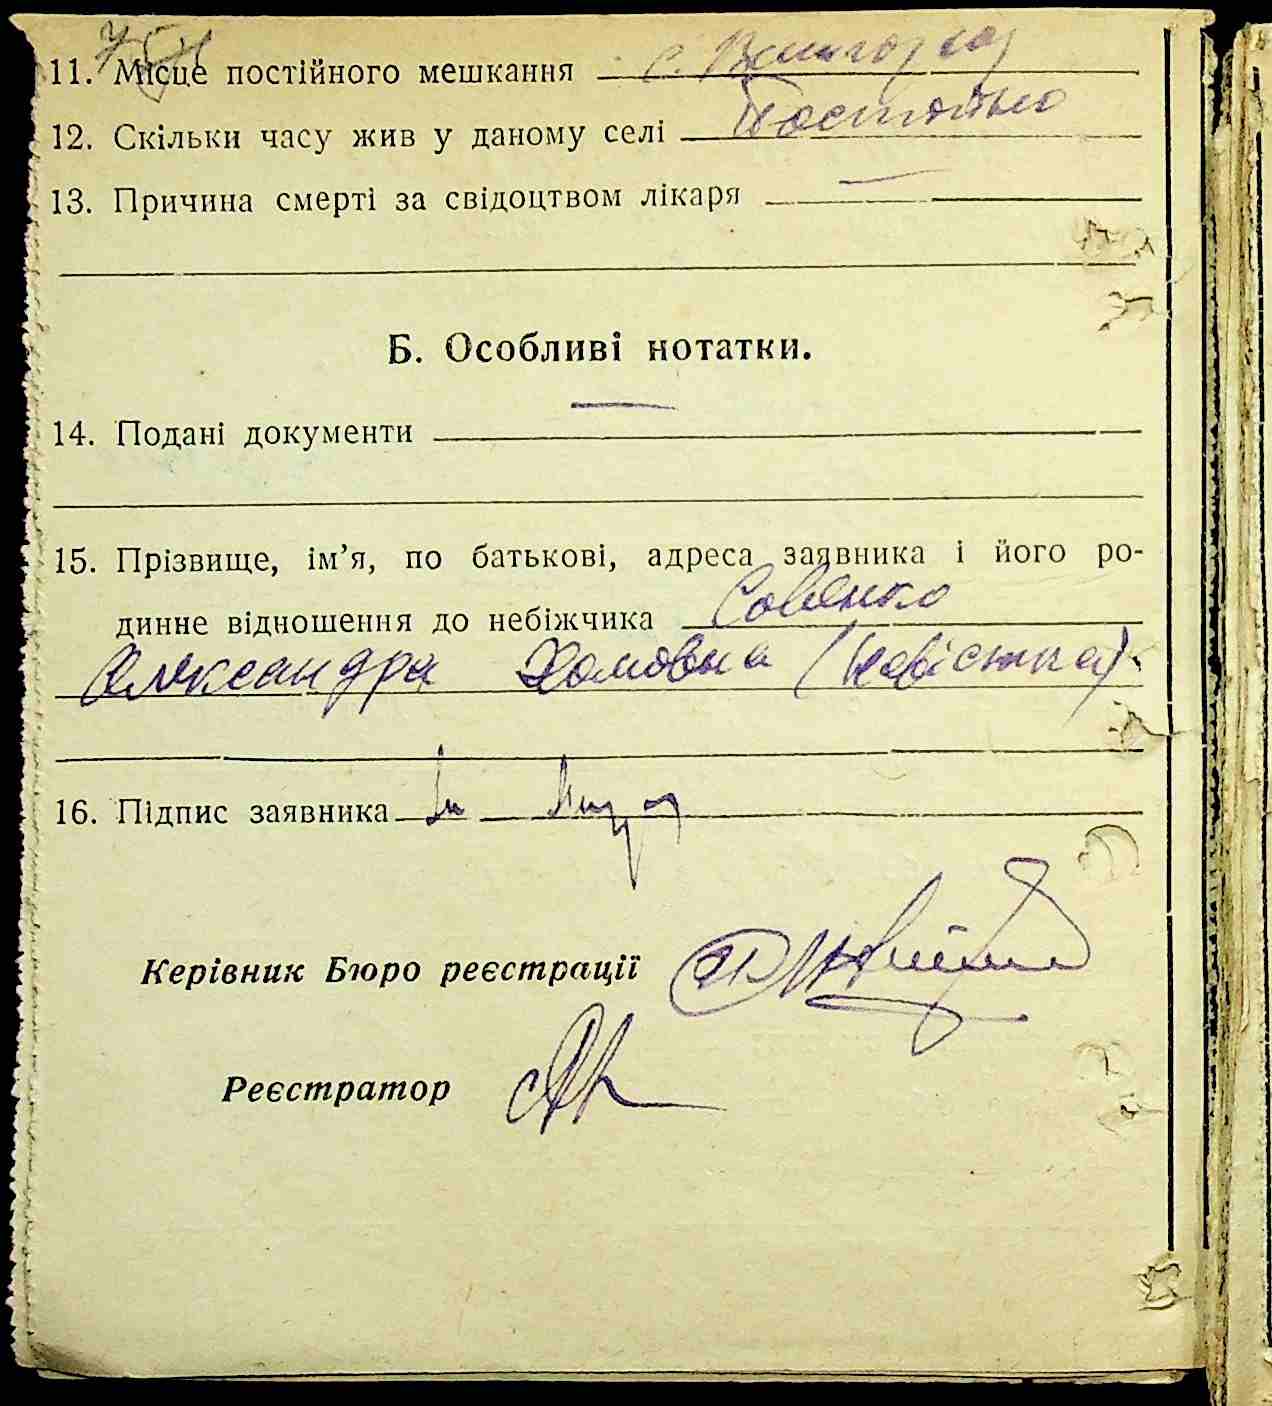 11. Місце постійного мешкання с.
12. Скільки часу жив у даному селі Постоянно
13. Причина смерті за свідоцтвом лікаря —
Б. Особливі нотатки.
14. Подані документи —
15. Прізвище, ім’я, по батькові, адреса заявника і його ро-
динне відношення до небіжчика Совенко
Александра Хомовна (невістка)
16. Підпис заявника
Керівник Бюро реєстрації
Реєстратор